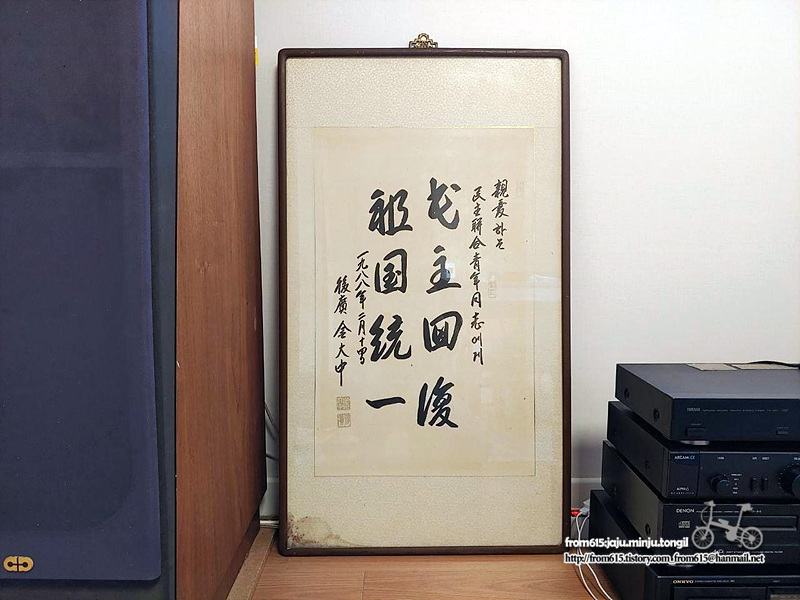 親愛하는
民主聯合青年同志에게
民主回復
祖国統一
一九八八年 二月十四日
後廣 金大中
ARCAM
DENON
ONKYO
from615:jaju.minju.tongil
http://from615.tistory.com_from615@hanmail.net